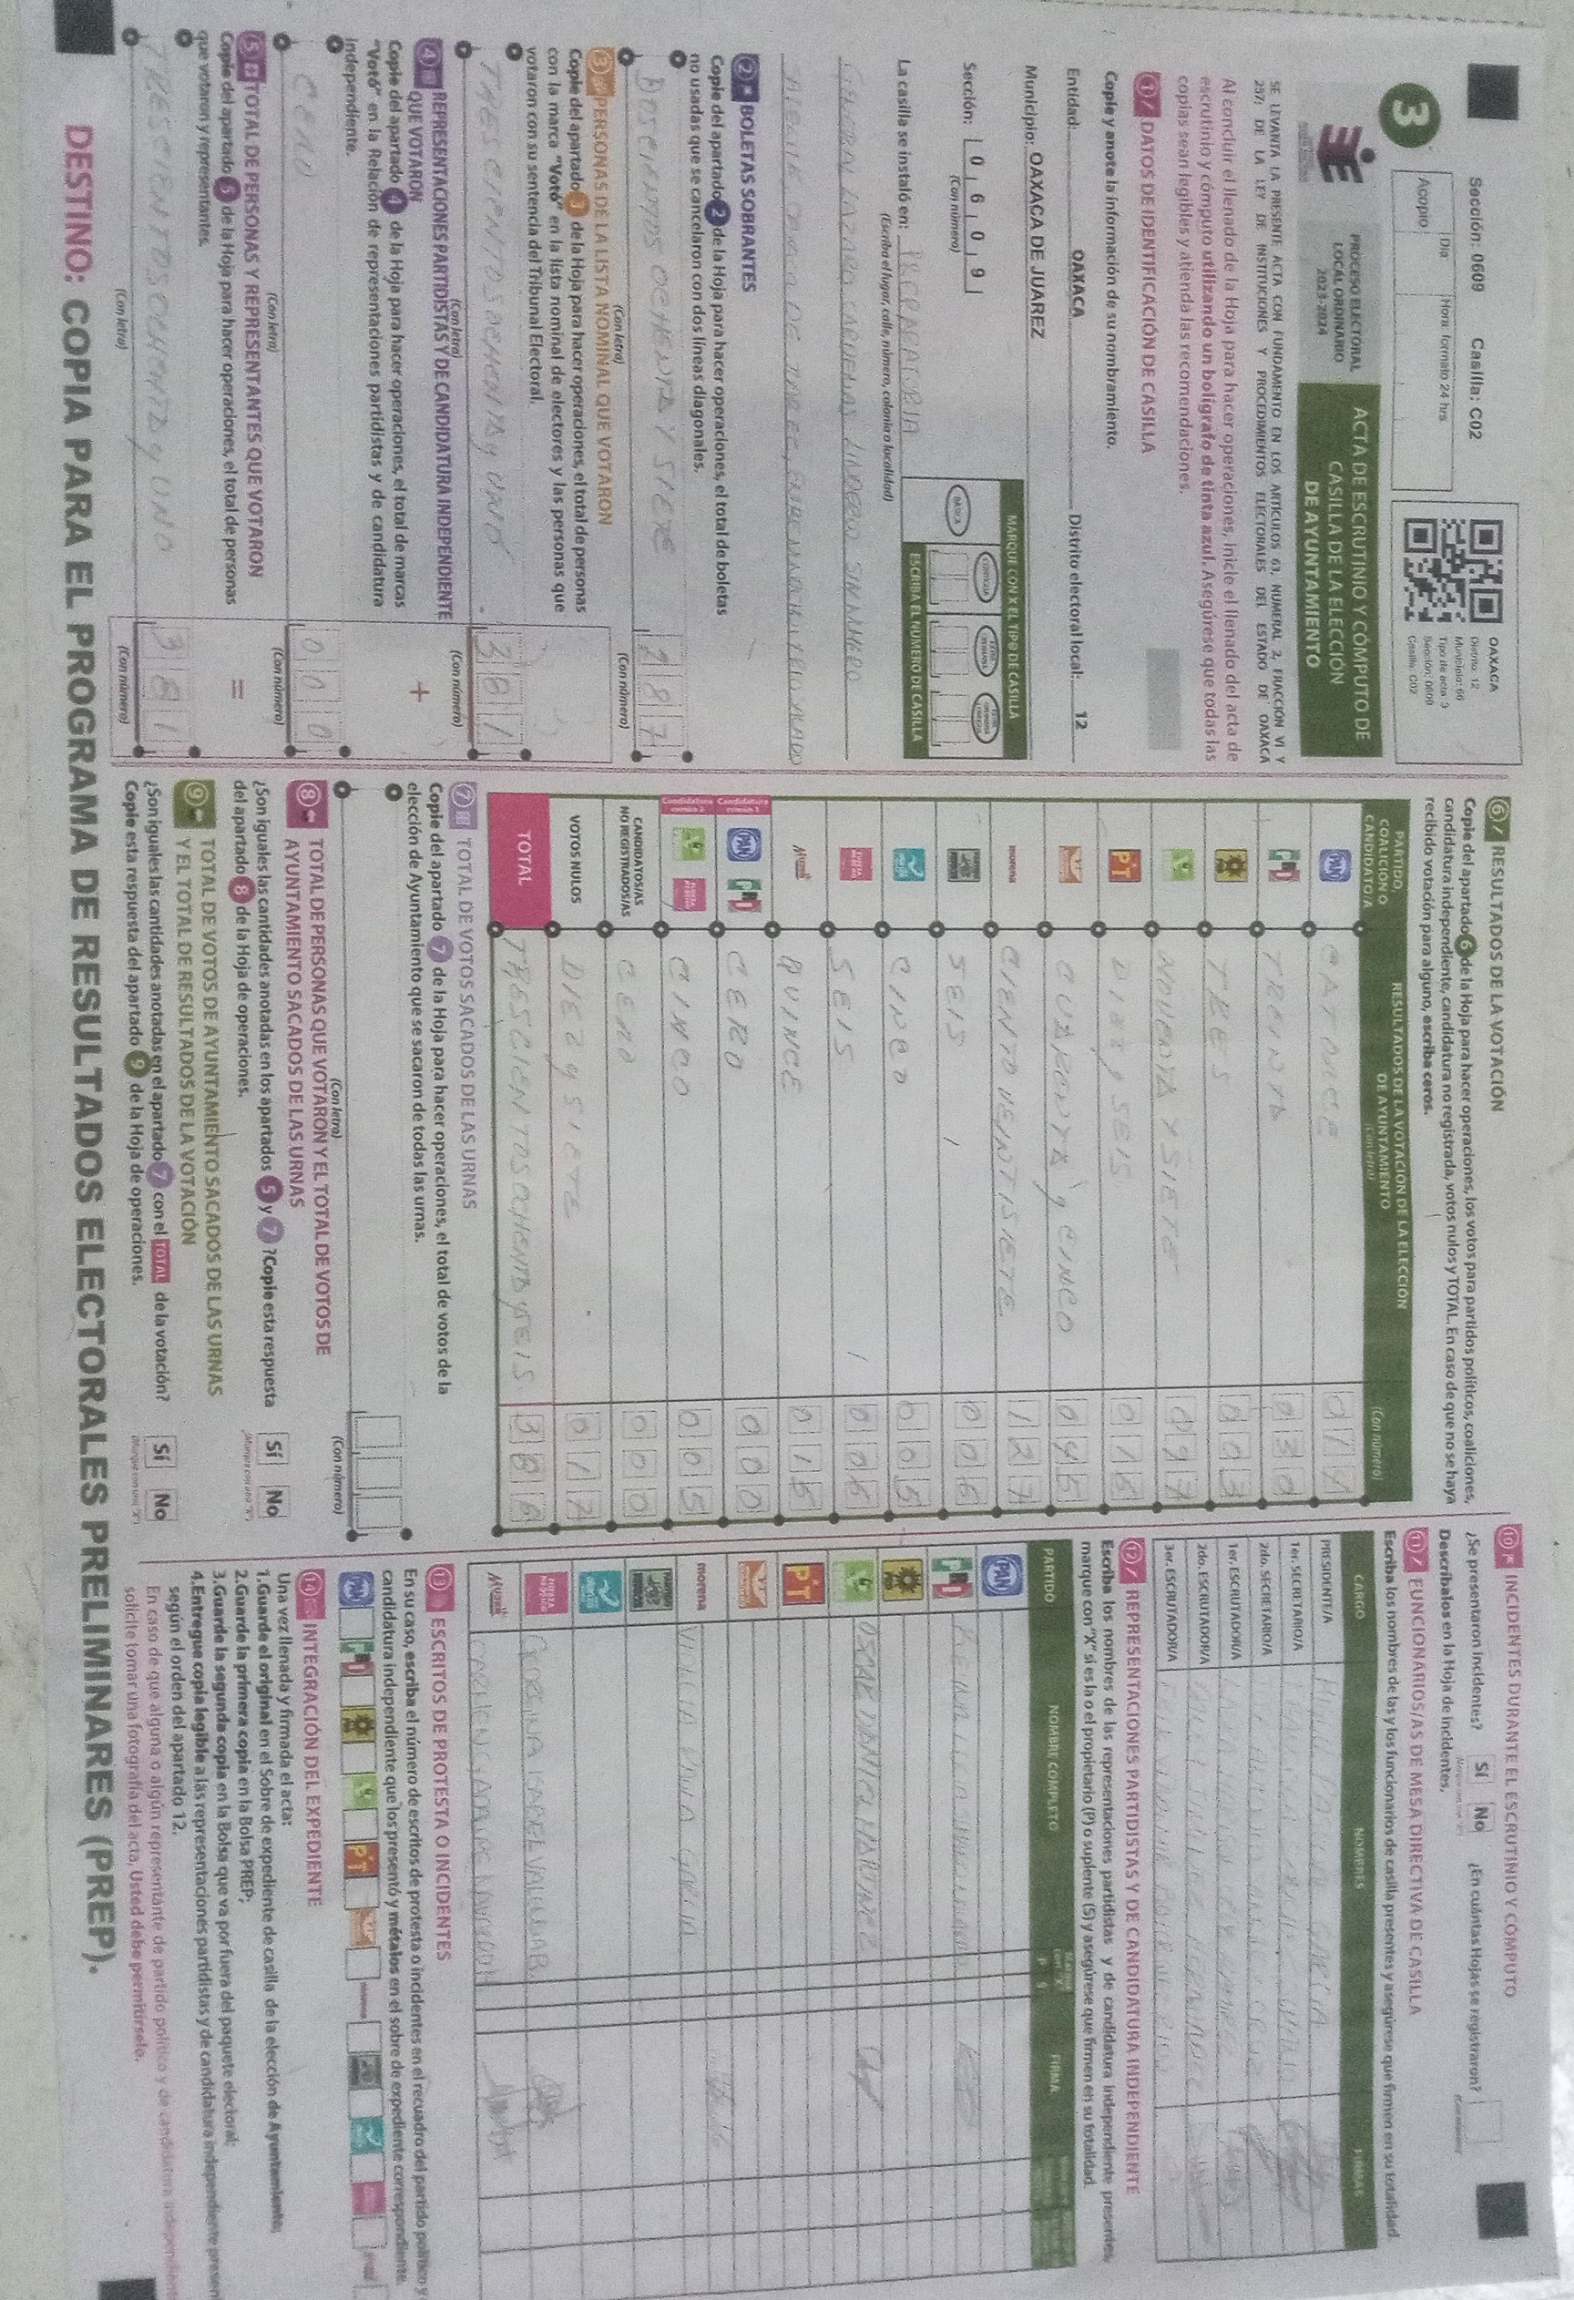 Sección: 0609 Casilla: C02
Día Hora: formato 24 hrs
Acopio
3
OAXACA
Distrito: 12
Municipio: 66
Tipo de acta: 3
Sección: 0609
Casilla: C02
PROCESO ELECTORAL
LOCAL ORDINARIO
2023-2024
ACTA DE ESCRUTINIO Y CÓMPUTO DE
CASILLA DE LA ELECCIÓN
DE AYUNTAMIENTO
SE LEVANTA LA PRESENTE ACTA CON FUNDAMENTO EN LOS ARTÍCULOS 63, NUMERAL 2, FRACCIÓN VI Y
237; DE LA LEY DE INSTITUCIONES Y PROCEDIMIENTOS ELECTORALES DEL ESTADO DE OAXACA
Al concluir el llenado de la Hoja para hacer operaciones, inicie el llenado del acta de
escrutinio y cómputo utilizando un bolígrafo de tinta azul. Asegúrese que todas las
copias sean legibles y atienda las recomendaciones.
1 DATOS DE IDENTIFICACIÓN DE CASILLA
Copie y anote la información de su nombramiento.
Entidad: OAXACA Distrito electoral local: 12
Municipio: OAXACA DE JUAREZ
Sección: 0 6 0 9
(Con número)
MARQUE CON X EL TIPO DE CASILLA
BÁSICA
ESCRIBA EL NÚMERO DE CASILLA
La casilla se instaló en:
(Escriba el lugar, calle, número, colonia o localidad)
2 BOLETAS SOBRANTES
Copie del apartado 2 de la Hoja para hacer operaciones, el total de boletas
no usadas que se cancelaron con dos líneas diagonales.
DOSCIENTOS OCHENTA Y SIETE 2 8 7
(Con letra) (Con número)
3 PERSONAS DE LA LISTA NOMINAL QUE VOTARON
Copie del apartado 3 de la Hoja para hacer operaciones, el total de personas
con la marca "Votó" en la lista nominal de electores y las personas que
votaron con su sentencia del Tribunal Electoral.
TRESCIENTOS OCHENTA y UNO 3 8 1
(Con letra) (Con número)
4 REPRESENTACIONES PARTIDISTAS Y DE CANDIDATURA INDEPENDIENTE
QUE VOTARON
+
Copie del apartado 4 de la Hoja para hacer operaciones, el total de marcas
"Votó" en la Relación de representaciones partidistas y de candidatura
independiente.
CERO 0 0 0
(Con letra) (Con número)
5 TOTAL DE PERSONAS Y REPRESENTANTES QUE VOTARON
=
Copie del apartado 5 de la Hoja para hacer operaciones, el total de personas
que votaron y representantes.
TRESCIENTOS OCHENTA y UNO 3 8 1
(Con letra) (Con número)
6 RESULTADOS DE LA VOTACIÓN
Copie del apartado 6 de la Hoja para hacer operaciones, los votos para partidos políticos, coaliciones,
candidatura independiente, candidatura no registrada, votos nulos y TOTAL. En caso de que no se haya
recibido votación para alguno, escriba ceros.
PARTIDO, COALICIÓN O CANDIDATO/A
RESULTADOS DE LA VOTACIÓN DE LA ELECCIÓN DE AYUNTAMIENTO
(Con letra) (Con número)
PAN CATORCE 0 1 4
PRI TREINTA 0 3 0
TRES 0 0 3
NOVENTA Y SIETE 0 9 7
PT DIEZ y SEIS 0 1 6
CUARENTA y CINCO 0 4 5
morena CIENTO VEINTISIETE 1 2 7
SEIS 0 0 6
CINCO 0 0 5
SEIS 0 0 6
QUINCE 0 1 5
PAN PRI CERO 0 0 0
CINCO 0 0 5
CANDIDATOS/AS NO REGISTRADOS/AS CERO 0 0 0
VOTOS NULOS DIEZ y SIETE 0 1 7
TOTAL TRESCIENTOS OCHENTA y SEIS 3 8 6
7 TOTAL DE VOTOS SACADOS DE LAS URNAS
Copie del apartado 7 de la Hoja para hacer operaciones, el total de votos de la
elección de Ayuntamiento que se sacaron de todas las urnas.
(Con letra) (Con número)
8 TOTAL DE PERSONAS QUE VOTARON Y EL TOTAL DE VOTOS DE
AYUNTAMIENTO SACADOS DE LAS URNAS
¿Son iguales las cantidades anotadas en los apartados 5 y 7? Copie esta respuesta
del apartado 8 de la Hoja de operaciones. Sí No
9 TOTAL DE VOTOS DE AYUNTAMIENTO SACADOS DE LAS URNAS
Y EL TOTAL DE RESULTADOS DE LA VOTACIÓN
¿Son iguales las cantidades anotadas en el apartado 7 con el TOTAL de la votación?
Copie esta respuesta del apartado 9 de la Hoja de operaciones. Sí No
10 INCIDENTES DURANTE EL ESCRUTINIO Y CÓMPUTO
¿Se presentaron incidentes? Sí No ¿En cuántas Hojas se registraron?
Descríbalos en la Hoja de incidentes.
11 FUNCIONARIOS/AS DE MESA DIRECTIVA DE CASILLA
Escriba los nombres de las y los funcionarios de casilla presentes y asegúrese que firmen en su totalidad.
CARGO NOMBRES FIRMAS
PRESIDENTE/A
1er. SECRETARIO/A
2do. SECRETARIO/A
1er. ESCRUTADOR/A
2do. ESCRUTADOR/A
3er. ESCRUTADOR/A
12 REPRESENTACIONES PARTIDISTAS Y DE CANDIDATURA INDEPENDIENTE
Escriba los nombres de las representaciones partidistas y de candidatura independiente presentes,
marque con "X" si es la o el propietario (P) o suplente (S) y asegúrese que firmen en su totalidad.
PARTIDO NOMBRE COMPLETO P S FIRMA
PAN
PRI
PT
morena
13 ESCRITOS DE PROTESTA O INCIDENTES
En su caso, escriba el número de escritos de protesta o incidentes en el recuadro del partido político y
candidatura independiente que los presentó y métalos en el sobre de expediente correspondiente.
14 INTEGRACIÓN DEL EXPEDIENTE
Una vez llenada y firmada el acta:
1.Guarde el original en el Sobre de expediente de casilla de la elección de Ayuntamiento;
2.Guarde la primera copia en la Bolsa PREP;
3.Guarde la segunda copia en la Bolsa que va por fuera del paquete electoral;
4.Entregue copia legible a las representaciones partidistas y de candidatura independiente presentes
según el orden del apartado 12.
En caso de que alguna o algún representante de partido político y de candidatura independiente
solicite tomar una fotografía del acta, Usted debe permitírselo.
DESTINO: COPIA PARA EL PROGRAMA DE RESULTADOS ELECTORALES PRELIMINARES (PREP).